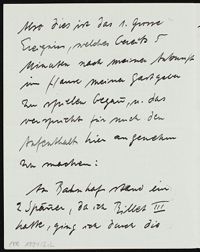 Also dies ist das 1. grosse
Ereignis, welches bereits 5
Minuten nach meiner Ankunft
im Hause meiner Gastgeber
zu spielen begann, u. das
verspricht für mich den
Aufenthalt hier angenehm
zu machen:
Am Bahnhof stand ein
2 Spänner, da ich Billet III
hatte, ging ich durch die